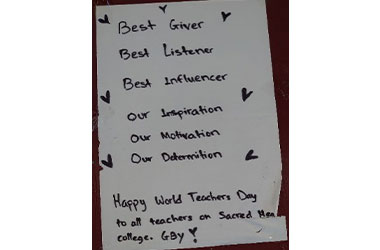 Best Giver
Best Listener
Best Influencer
Our Inspiration
Our Motivation
Our Determition
Happy World Teachers Day
to all teachers on Sacred Hea
college. GBY